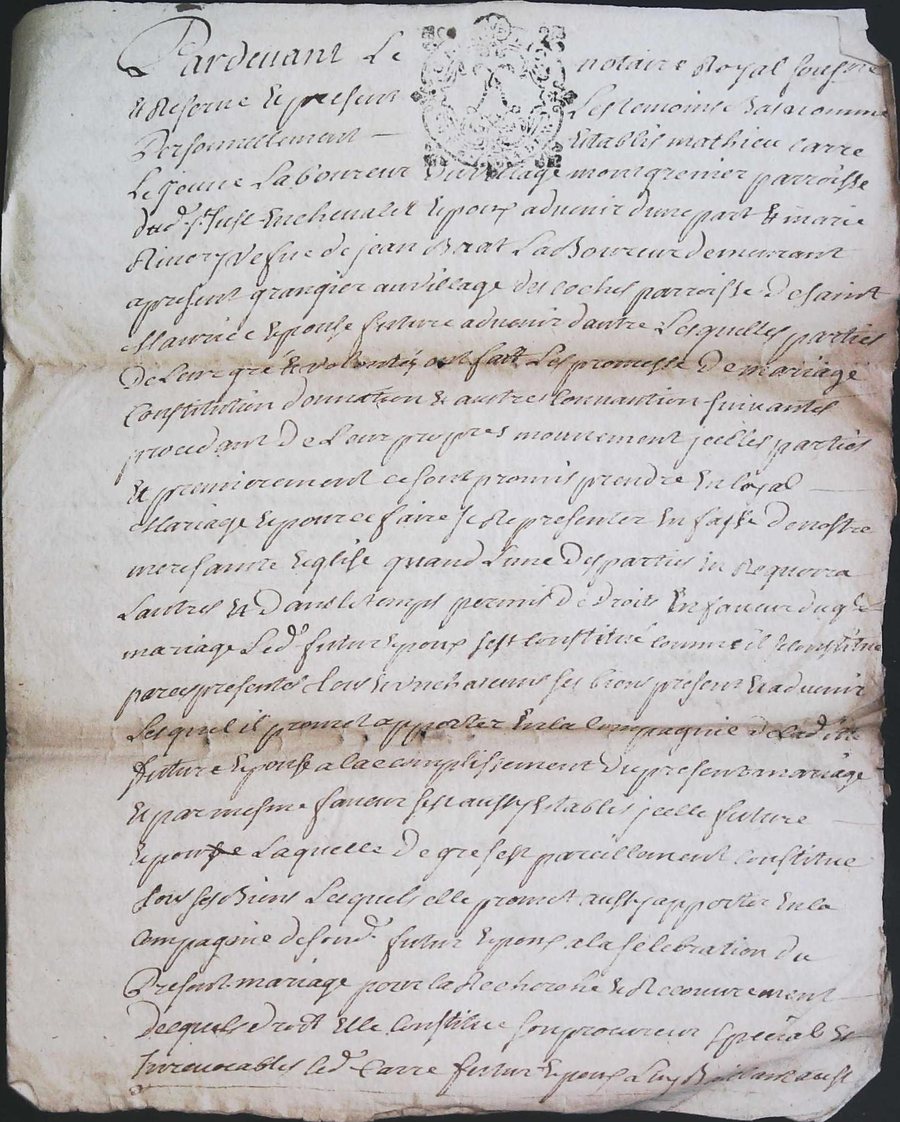 Pardevant Le notaire Royal soubsne
et Reserue et present Les temoins Bas nomme
Personnellement Etablis mathieu Carre
Le jeune Laboureur du village montgrenier parroisse
dud. st Just en chevalet Epoux advenir dune part Et marie
vefve de jean Laboureur demeurant
apresent grangier au village des loches parroisse de saint
Maurice Epouse future advenir dautre Lesquelles parties
de Leur gré et volontés ont fait Les promesse de mariage
Constitution donnation & autres Conuantion suivantes
procedant de Leur propres mouvement jcelles parties
Et premierement ce sont promis prendre En loyal
Mariage Et pour ce faire se Representer En fasse de nostre
mere sainte Eglise quand Lune des parties En Requerra
Lautres Et dans le temps permis de droit En faveur duq
mariage Led. futur Epoux sest Constitué comme il se constitue
par ces presentes tous Et un chacuns ses biens present Et advenir
Lesquel il promet apporter En la Compagnie de Ladite
future Epouse a la complissement du present mariage
Et par mesme faveur sest aussy Establies jcelle future
Epouse Laquelle de gre sest pareillement Constitue
tous ses Biens Lesquels elle promet aussy apporter En la
Compagnie de sond. futur Epoux a la sélébration du
Present mariage pour la Recherche et Recouvrement
desquels droit Elle Constitue son procureur spécial Et
Irrevocables led. Carre futur Epoux Luy